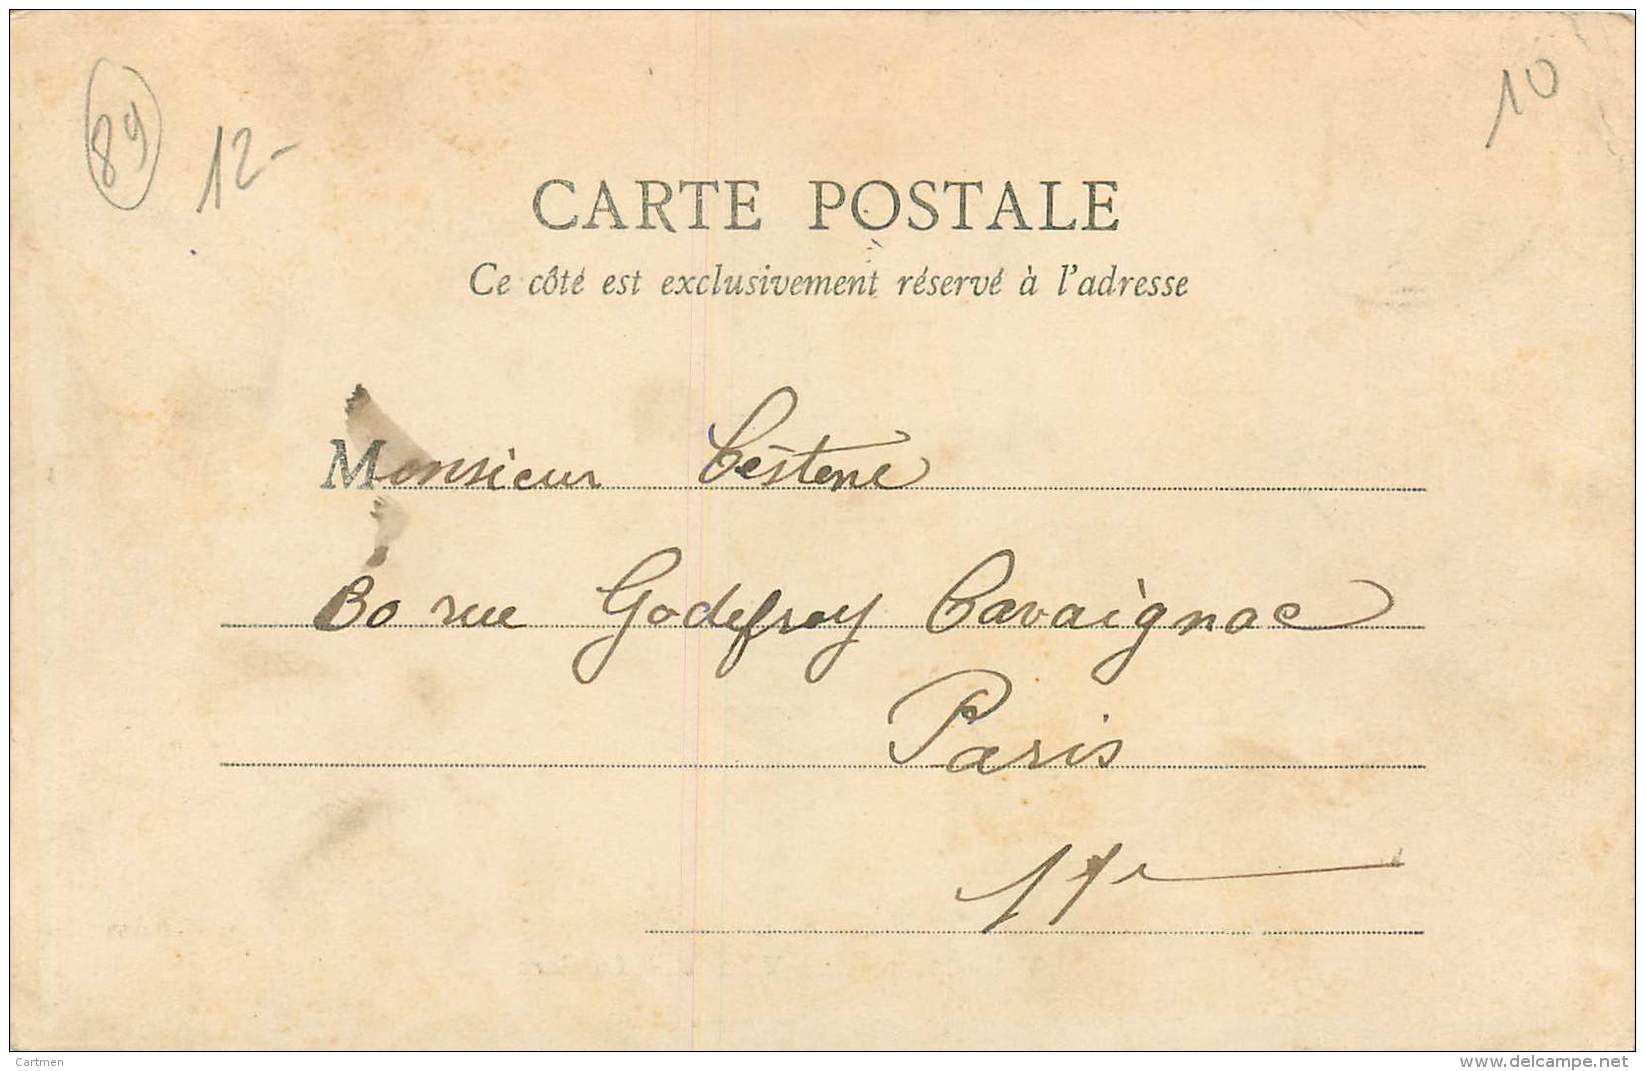 89
12-
10
CARTE POSTALE
Ce côté est exclusivement réservé à l'adresse
Monsieur Cestene
30 rue Godefroy Cavaignac
Paris
11e
Cartmen
www.delcampe.net